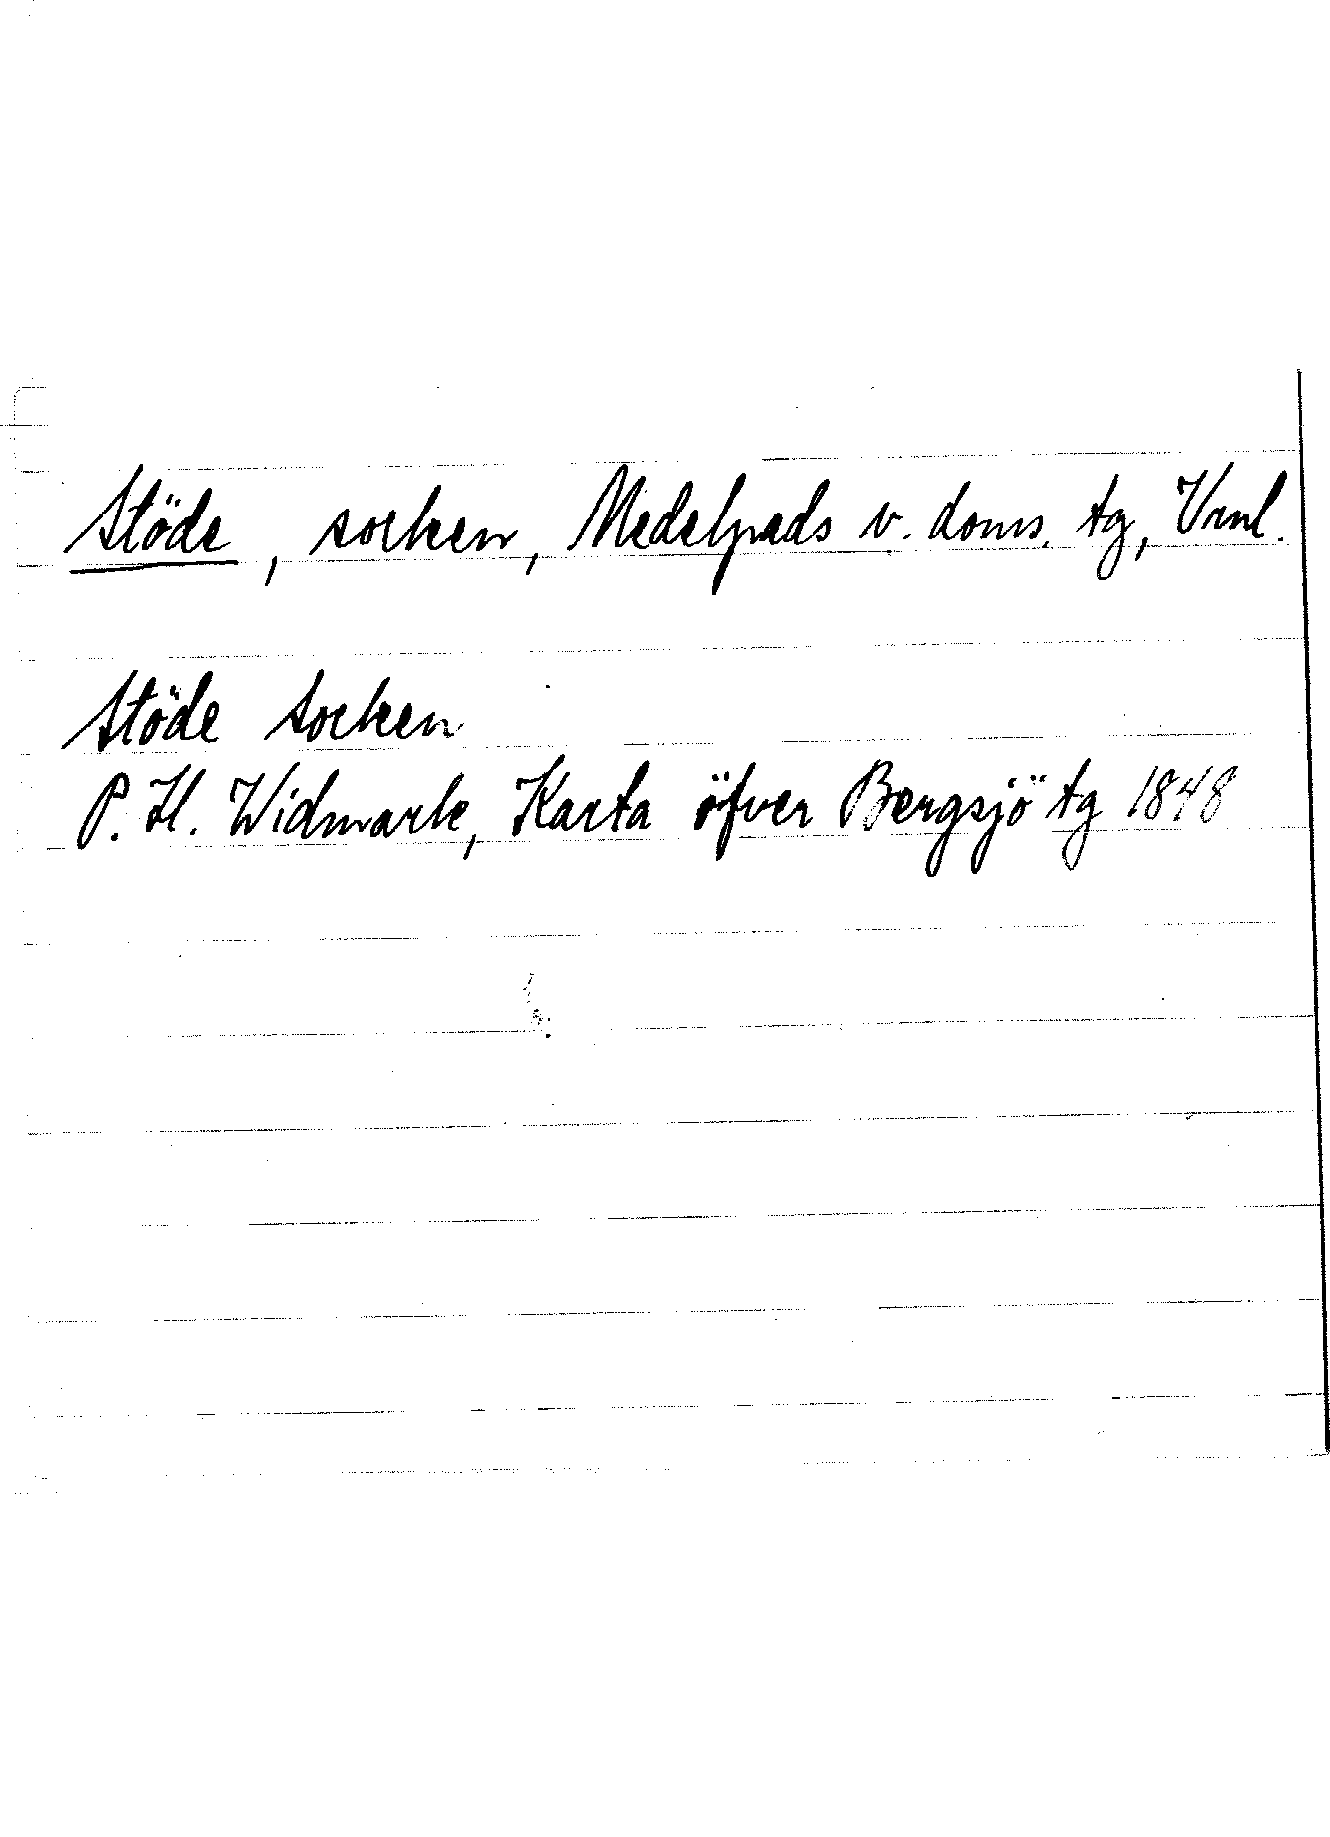 Stöde, socken, Medelpads v. doms. tg, Vrnl.
Stöde Socken
P. H. Widmark, Karta öfver Bergsjö tg 1848